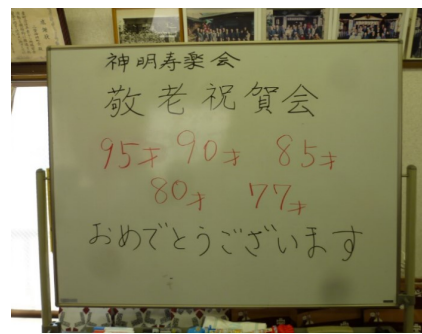 神明寿楽会
敬老祝賀会
95才 90才 85才
80才 77才
おめでとうございます